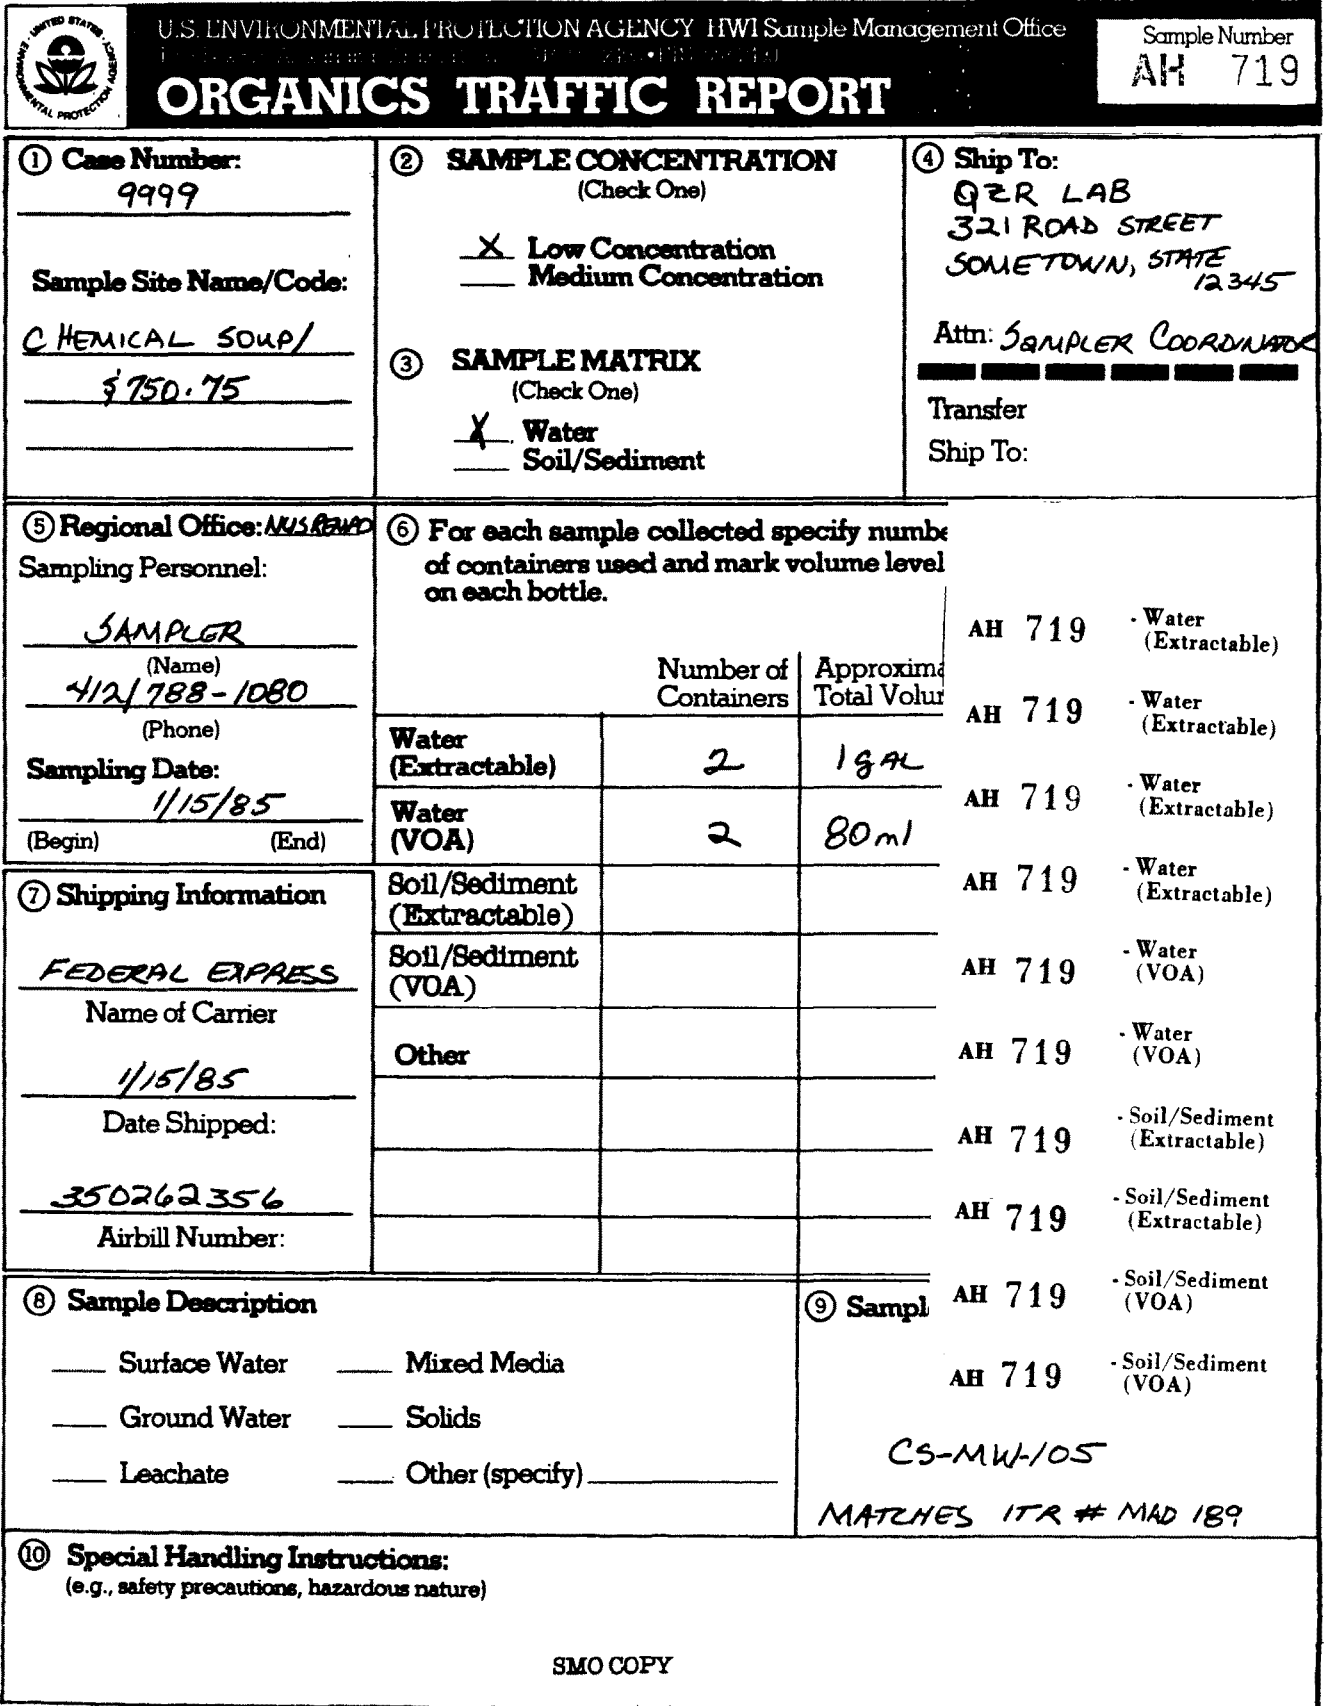 U.S. ENVIRONMENTAL PROTECTION AGENCY HWI Sample Management Office
ORGANICS TRAFFIC REPORT
Sample Number
AH 719
① Case Number:
9999
Sample Site Name/Code:
CHEMICAL SOUP/
$750.75
② SAMPLE CONCENTRATION
(Check One)
X Low Concentration
Medium Concentration
③ SAMPLE MATRIX
(Check One)
X Water
Soil/Sediment
④ Ship To:
QZR LAB
321 ROAD STREET
SOMETOWN, STATE
12345
Attn: SAMPLER COORDINATOR
Transfer
Ship To:
⑤ Regional Office: NUS
Sampling Personnel:
SAMPLER
(Name)
412/788-1080
(Phone)
Sampling Date:
1/15/85
(Begin) (End)
⑥ For each sample collected specify numbe
of containers used and mark volume level
on each bottle.
Number of Containers
Approxima
Total Volur
Water
(Extractable) 2 1 gAL
Water
(VOA) 2 80ml
Soil/Sediment
(Extractable)
Soil/Sediment
(VOA)
Other
AH 719 - Water
(Extractable)
AH 719 - Water
(Extractable)
AH 719 - Water
(Extractable)
AH 719 - Water
(Extractable)
AH 719 - Water
(VOA)
AH 719 - Water
(VOA)
AH 719 - Soil/Sediment
(Extractable)
AH 719 - Soil/Sediment
(Extractable)
AH 719 - Soil/Sediment
(VOA)
AH 719 - Soil/Sediment
(VOA)
⑦ Shipping Information
FEDERAL EXPRESS
Name of Carrier
1/15/85
Date Shipped:
350262356
Airbill Number:
⑧ Sample Description
Surface Water Mixed Media
Ground Water Solids
Leachate Other (specify)
⑨ Sampl
CS-MW-105
MATCHES ITR # MAD 189
⑩ Special Handling Instructions:
(e.g., safety precautions, hazardous nature)
SMO COPY